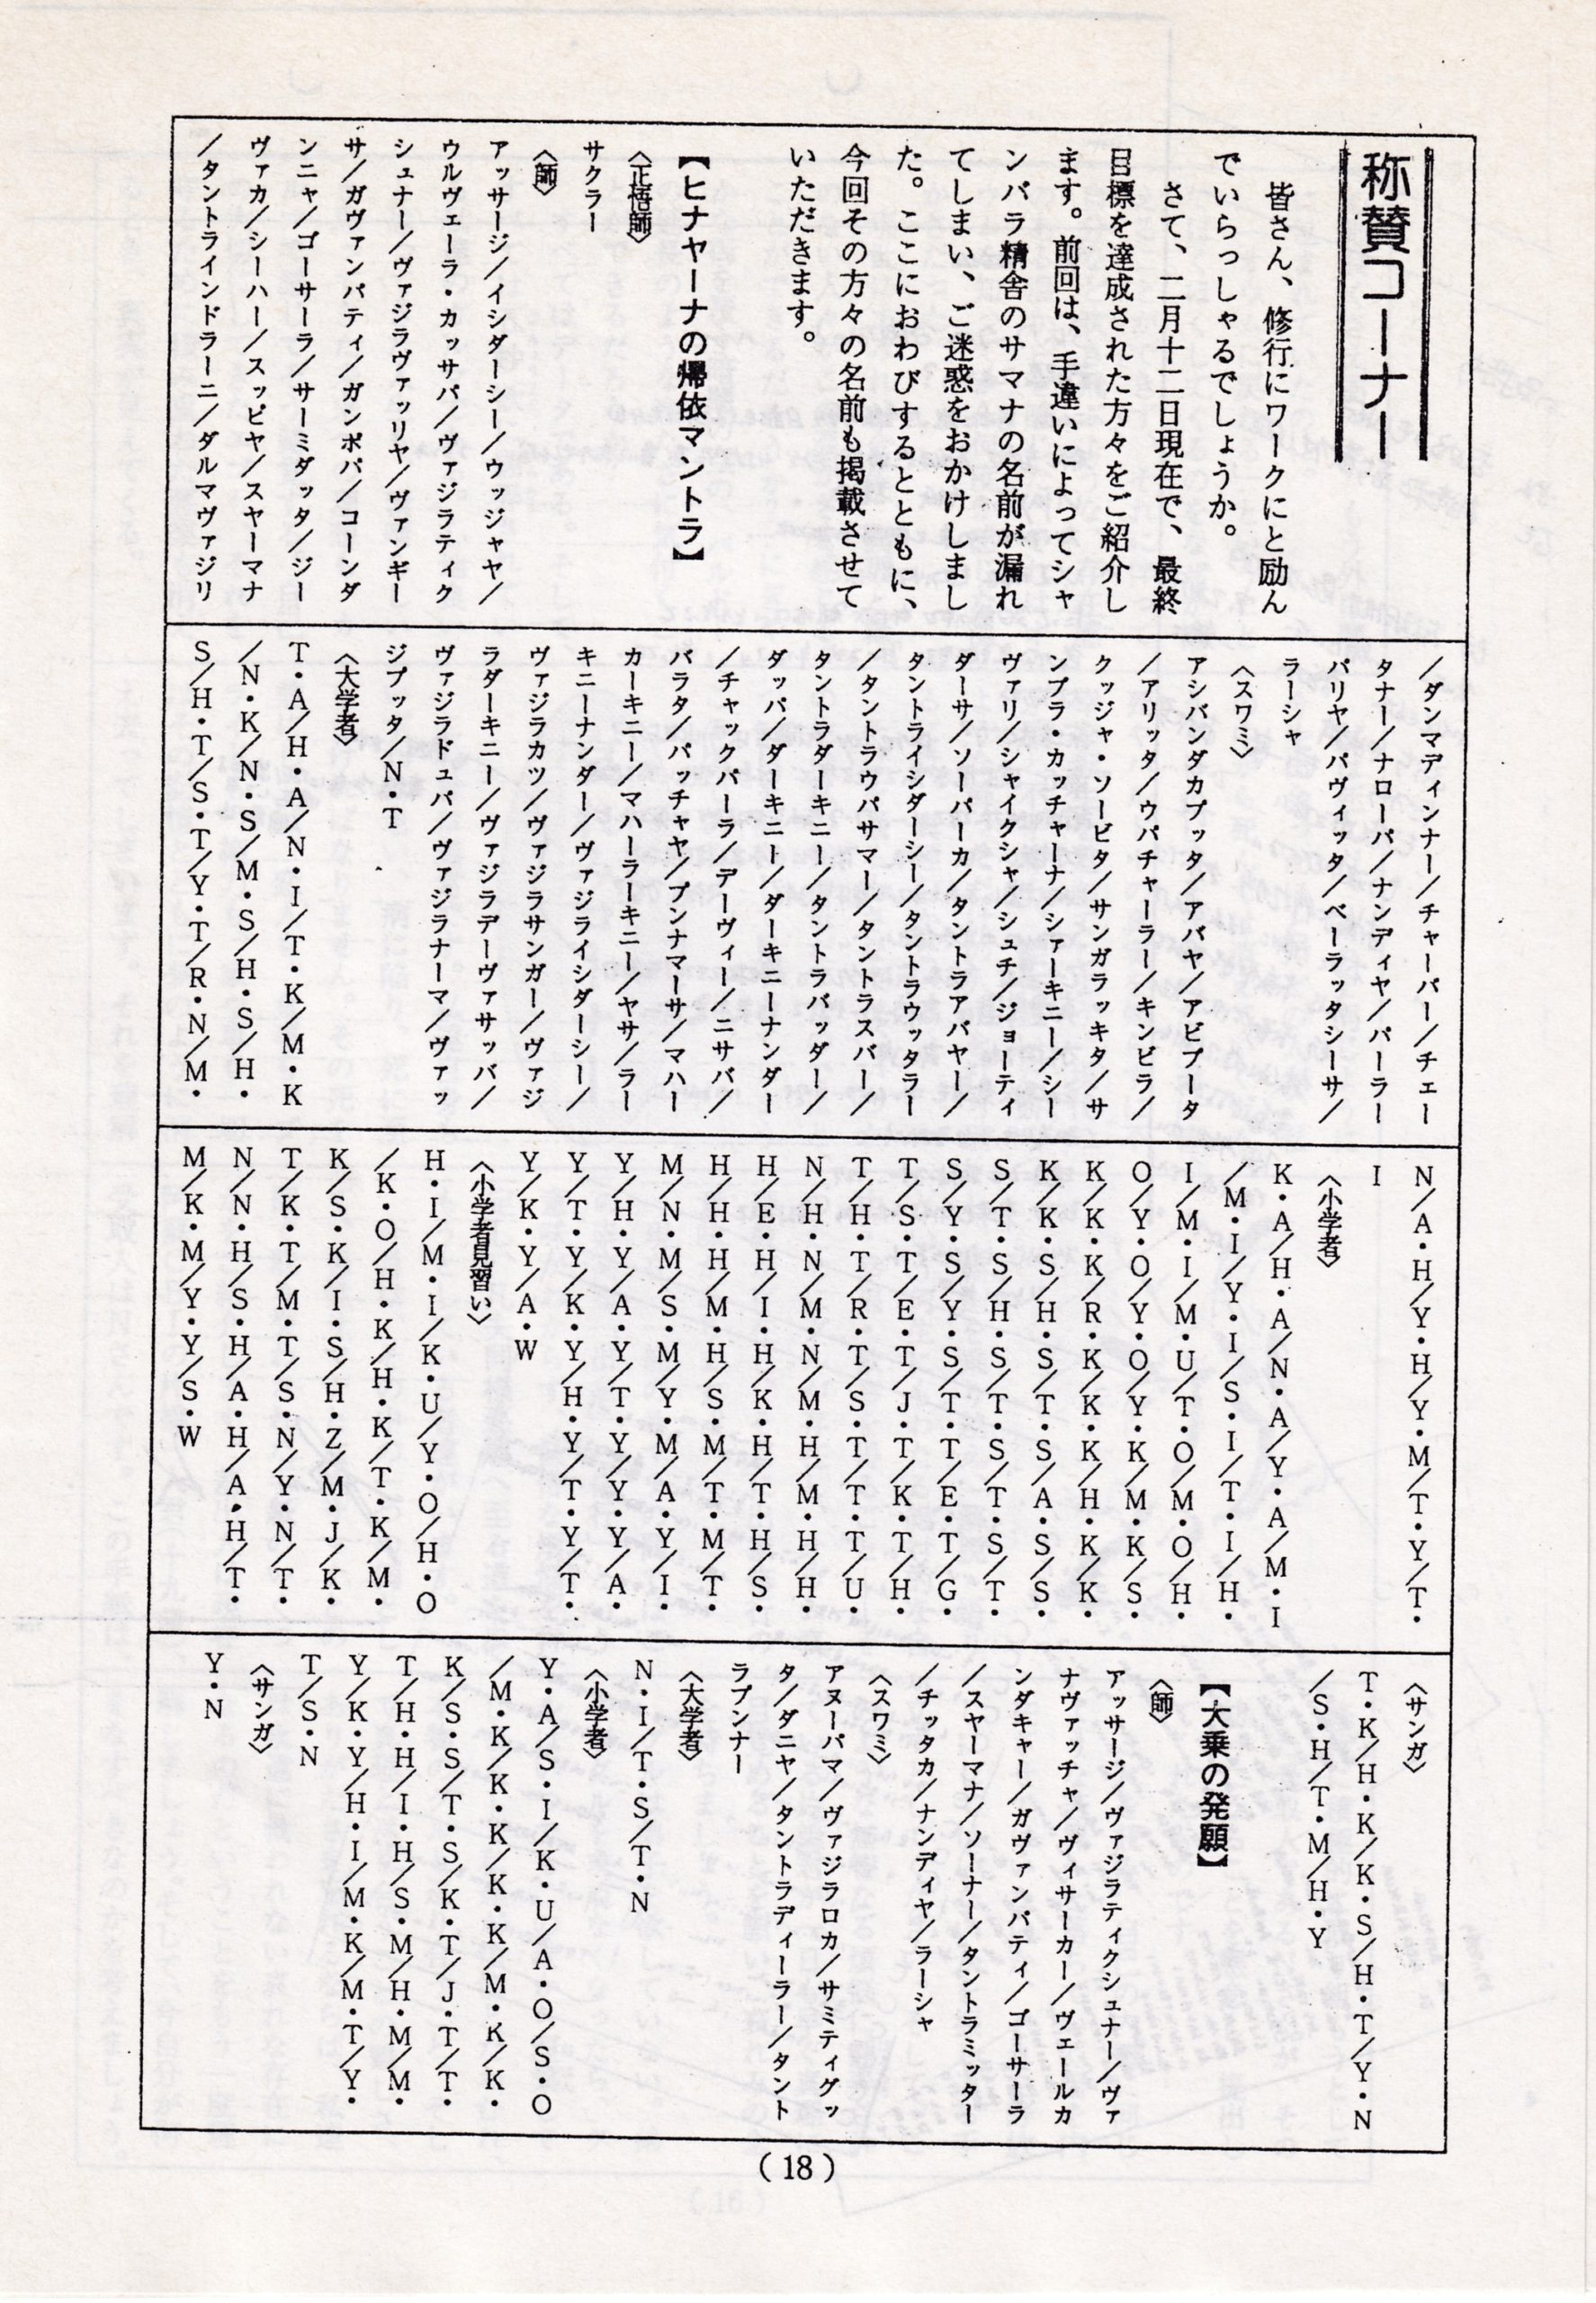 称賛コーナー
皆さん、修行にワークにと励ん
でいらっしゃるでしょうか。
さて、二月十二日現在で、最終
目標を達成された方々をご紹介し
ます。前回は、手違いによってシャ
ンバラ精舎のサマナの名前が漏れ
てしまい、ご迷惑をおかけしまし
た。ここにおわびするとともに、
今回その方々の名前も掲載させて
いただきます。
【ヒナヤーナの帰依マントラ】
〈正悟師〉
サクラー
〈師〉
アッサージ/イシダーシー/ウッジャヤ/
ウルヴェーラ・カッサパ/ヴァジラティク
シュナー/ヴァジラヴァッリヤ/ヴァンギー
サ/ガヴァンパティ/ガンポパ/コーンダ
ンニャ/ゴーサーラ/サーミダッタ/ジー
ヴァカ/シーハー/スッピヤ/スヤーマナ
/タントラインドラーニ/ダルマヴァジリ
/ダンマディンナー/チャーパー/チェー
タナー/ナローパ/ナンディヤ/パーラー
パリヤ/パヴィッタ/ベーラッタシーサ/
ラーシャ
〈スワミ〉
アシバンダカプッタ/アバヤ/アビブータ
/アリッタ/ウパチャーラー/キンビラ/
クッジャ・ソービタ/サンガラッキタ/サ
ンブラ・カッチャーナ/シァーキニー/シー
ヴァリ/シャイクシャ/シュチ/ジョーティ
ダーサ/ソーパーカ/タントラアバヤー/
タントライシダーシー/タントラウッタラー
/タントラウパサマー/タントラスバー/
タントラダーキニー/タントラバッダー/
ダッパ/ダーキニー/ダーキニーナンダー
/チャックパーラ/デーヴィー/ニサバ/
バラタ/パッチャヤ/プンナマーサ/マハー
カーキニー/マハーラーキニー/ヤサ/ラー
キニーナンダー/ヴァジライシダーシー/
ヴァジラカツ/ヴァジラサンガー/ヴァジ
ラダーキニー/ヴァジラデーヴァサッバ/
ヴァジラドュパ/ヴァジラナーマ/ヴァッ
ジプッタ/N・T
〈大学者〉
T・A/H・A/N・I/T・K/M・K
/N・K/N・S/M・S/H・S/H・
S/H・T/S・T/Y・T/R・N/M・
N/A・H/Y・H/Y・M/T・Y/T・
I
〈小学者〉
K・A/H・A/N・A/Y・A/M・I
/M・I/Y・I/S・I/T・I/H・
I/M・I/M・U/T・O/M・O/H・
O/Y・O/Y・O/Y・K/M・K/S・
K/K・K/R・K/K・K/H・K/K・
K/K・S/H・S/T・S/A・S/S・
S/T・S/H・S/T・S/T・S/T・
S/Y・S/Y・S/T・T/E・T/G・
T/S・T/E・T/J・T/K・T/H・
T/H・T/R・T/S・T/T・T/U・
N/H・N/M・N/M・H/M・H/H・
H/E・H/I・H/K・H/T・H/S・
H/H・H/M・H/S・M/T・M/T・
M/N・M/S・M/Y・M/A・Y/I・
Y/H・Y/A・Y/T・Y/Y・Y/A・
Y/T・Y/K・Y/H・Y/T・Y/T・
Y/K・Y/A・W
〈小学者見習い〉
H・I/M・I/K・U/Y・O/H・O
/K・O/H・K/H・K/T・K/M・
K/S・K/I・S/H・Z/M・J/K・
T/K・T/M・T/S・N/Y・N/T・
N/N・H/S・H/A・H/A・H/T・
M/K・M/Y・Y/S・W
〈サンガ〉
T・K/H・K/K・S/H・T/Y・N
/S・H/T・M/H・Y
【大乗の発願】
〈師〉
アッサージ/ヴァジラティクシュナー/ヴァ
ナヴァッチャ/ヴィサーカー/ヴェールカ
ンダキャー/ガヴァンパティ/ゴーサーラ
/スヤーマナ/ソーナー/タントラミッター
/チッタカ/ナンディヤ/ラーシャ
〈スワミ〉
アヌーパマ/ヴァジラロカ/サミティグッ
タ/ダニヤ/タントラディーラー/タント
ラプンナー
〈大学者〉
N・I/T・S/T・N
〈小学者〉
Y・A/S・I/K・U/A・O/S・O
/M・K/K・K/K・K/M・K/K・
K/S・S/T・S/K・T/J・T/T・
T/H・H/I・H/S・M/H・M/M・
Y/K・Y/H・I/M・K/M・T/Y・
T/S・N
〈サンガ〉
Y・N
(18)